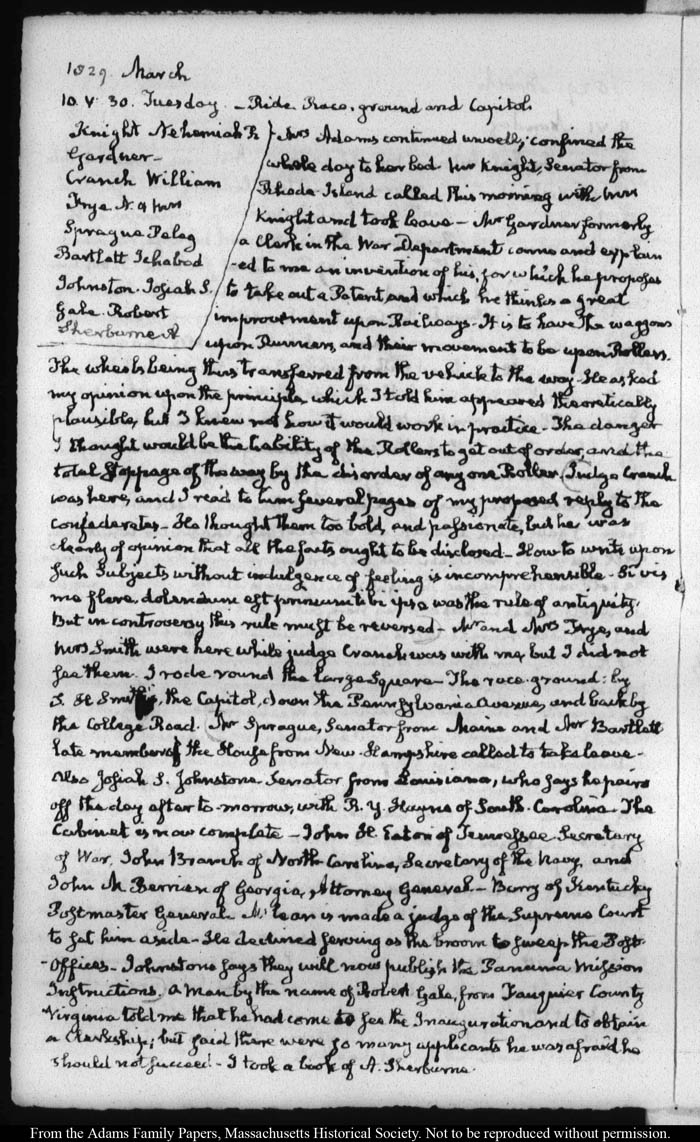 1829. March
10. V: 30. Tuesday. – Ride Race-ground and Capitol.
Knight Nehemiah R
Gardner –
Cranch William
Frye N. & Mrs
Sprague Peleg
Bartlett Ichabod
Johnston. Josiah S.
Gale. Robert
Sherburne A
Mrs Adams continued unwell; confined the
whole day to her bed. Mr Knight, Senator from
Rhode-Island called this morning with Mrs
Knight and took leave – Mr Gardner formerly
a Clerk in the War Department came and explain
-ed to me an invention of his, for which he proposes
to take out a Patent, and which he thinks a great
improvement upon Railways. It is to have the waggons
upon Runners, and their movement to be upon Rollers.
The wheels being thus transferred from the vehicle to the way. He asked
my opinion upon the principle, which I told him appeared theoretically
plausible, but I knew not how it would work in practice – The danger
I thought would be the liability of the Rollers to get out of order, and the
total stoppage of the way by the disorder of any one Roller. Judge Cranch
was here, and I read to him several pages of my proposed reply to the
Confederates – He thought them too bold, and passionate, but he was
clearly of opinion that all the facts ought to be disclosed – How to write upon
such subjects without indulgence of feeling is incomprehensible – Si vis
me flere, dolendum est primum tibi ipsi was the rule of antiquity.
But in controversy this rule must be reversed – Mr and Mrs Frye, and
Mrs Smith were here while judge Cranch was with me, but I did not
see them. I rode round the large Square – The race-ground: by
S. H Smith's, the Capitol, down the Pennsylvania Avenue, and back by
the College Road. Mr Sprague, Senator from Maine and Mr Bartlett
late member of the House from New-Hampshire called to take leave –
Also Josiah S. Johnstone Senator from Louisiana, who says he pairs
off the day after to-morrow, with R. Y. Hayne of South-Carolina. The
Cabinet is now complete – John H. Eaton of Tennessee Secretary
of War, John Branch of North-Carolina, Secretary of the Navy, and
John M. Berrien of Georgia, Attorney General – Barry of Kentucky
Postmaster General. McLean is made a judge of the Supreme Court
to set him aside – He declined serving as the broom to sweep the Post-
-Offices – Johnstone says they will now publish the Panama Mission
Instructions. A man by the name of Robert Gale, from Fauquier County
Virginia told me that he had come to see the Inauguration and to obtain
a Clerkship; but said there were so many applicants he was afraid he
should not succeed – I took a book of A. Sherburne.
From the Adams Family Papers, Massachusetts Historical Society. Not to be reproduced without permission.